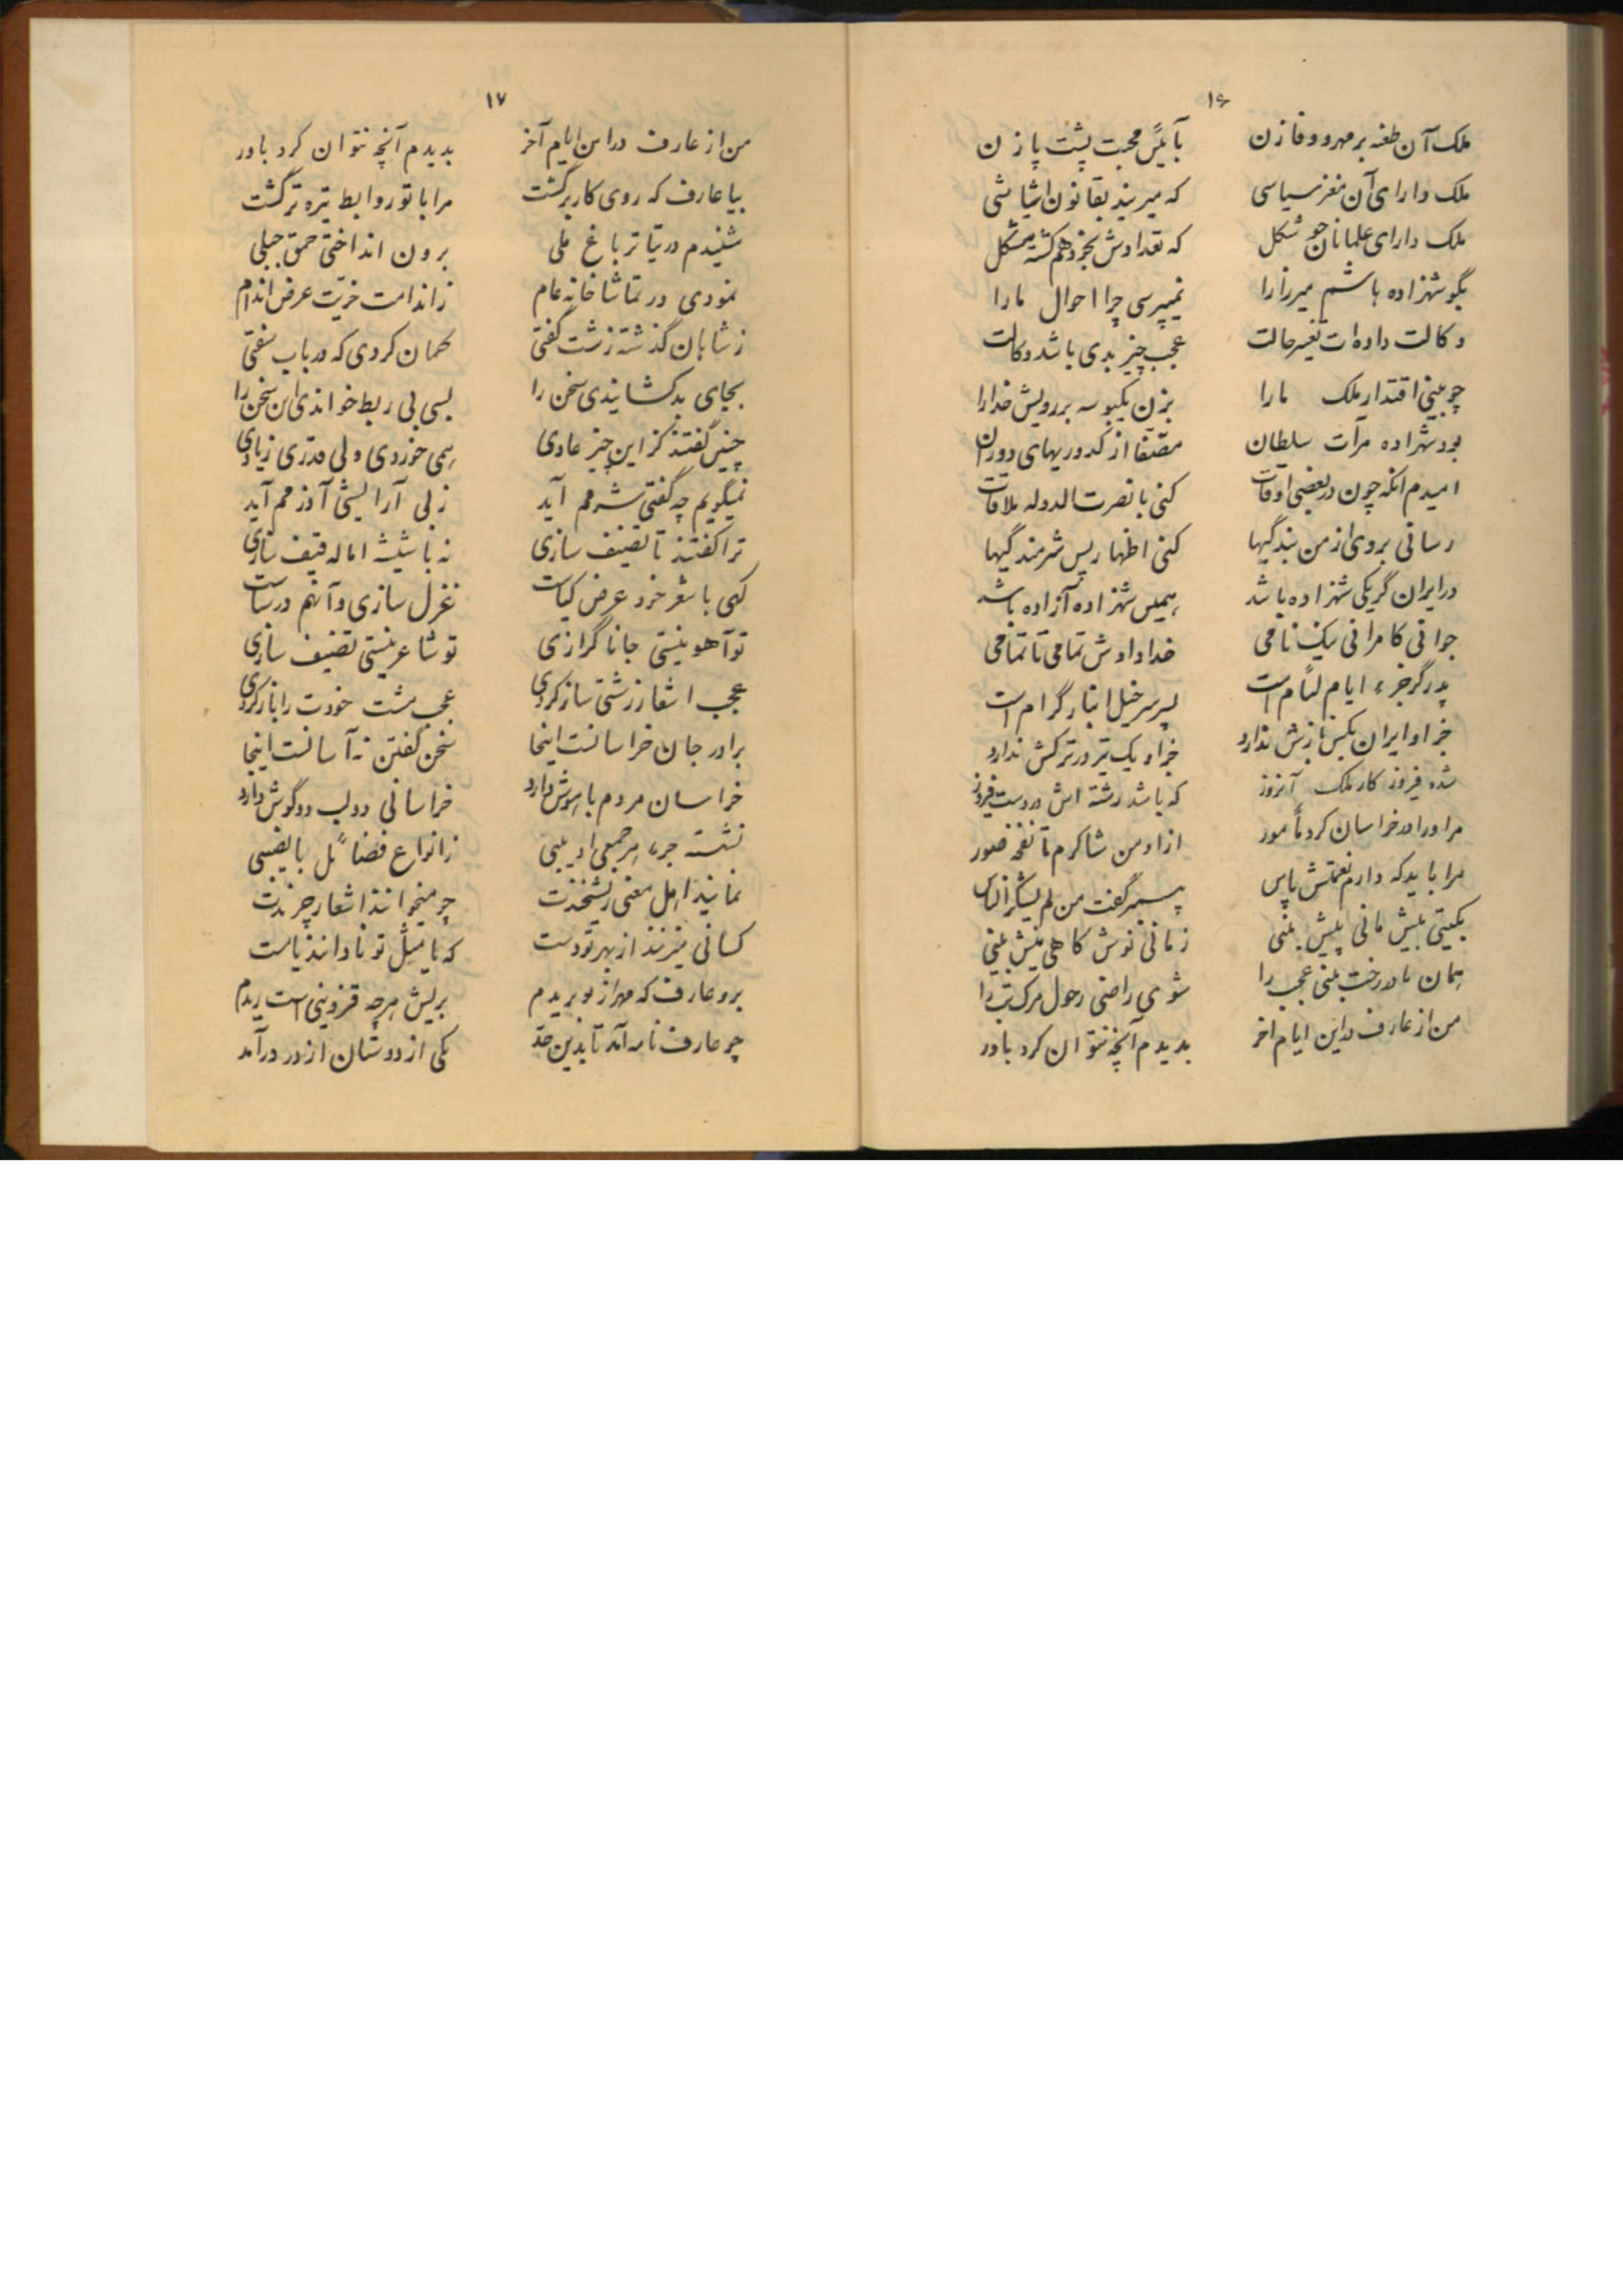 ۱۶
ملک آن طعنه بر مهر و وفا زن بآئین محبت پشت پا زن
ملک دارای آن مغز سیاسی که میرینَد بقانون اساسی
ملک دارای غلمانان خوشگل که تعدادش بخود هم گشته مشکل
بگو شهزاده هاشم میرزا را نمیپرسی چرا احوال ما را
وکالت داده ات تغییر حالت عجب چیز بدی باشد وکالت
چو بینی اقتدار ملک ما را بزن یکبوسه بر رویش خدا را
بود شهزاده مرآت سلطان مصفا از کدوریهای دوران
امیدم آنکه چون در بعضی اوقات کنی با نصرت الدوله ملاقات
رسانی بر وی از من بندگیها کنی اظهار پس شرمندگیها
در ایران گر یکی شهزاده باشد همین شهزاده آزاده باشد
جوانی کامرانی نیک نامی خدا دادش تمامی تا تمامی
پدر گر جزء ایام لئام است پسر سرخیل ابناء گرام است
جز او ایران بکس نازش ندارد جز او یک تیر در ترکش ندارد
شده فیروز کار ملک آنروز که باشد رشته اش در دست فیروز
مرا او در خراسان کرد مأمور از او من شاکرم تا نفخه صور
مرا باید که دارم نعمتش پاس پیمبر گفت من لم یشکر الناس
بگیتی بیش مانی بیش بینی زمانی نوش گاهی نیش بینی
همان نادر رخت بینی عجب را شوی راضی رحول مرگ تب را
من از عارف در این ایام اخر بدیدم آنچه نتوان کرد باور
۱۷
من از عارف در این ایام آخر بدیدم آنچه نتوان کرد باور
بیا عارف که روی کار برگشت مرا با تو روابط تیره تر گشت
شنیدم در تیاتر باغ ملی برون انداختی حمق جبلی
نمودی در تماشاخانه عام ز اندامت خریت عرض اندام
ز شاهان گذشته زشت گفتی گمان کردی که در باب سفتی
بجای بد کشانیدی سخن را بسی بی ربط خواندی این سخن را
چنین گفتند کز این چیز عادی همی خوردی ولی قدری زیادی
نمیگویم چه گفتی شرمم آید ز بی آرایشی آزرمم آید
ترا گفتند تا تصنیف سازی نه با شیشه اماله قیف سازی
کنی با شعر خود عرض کیاست غزل سازی و آنهم در سیاست
تو آهو نیستی جانا گرازی تو شاعر نیستی تصنیف سازی
عجب اشعار زشتی ساز کردی عجب مشت خودت را باز کردی
برادر جان خراسانست اینجا سخن گفتن نه آسانست اینجا
خراسان مردم باهوش دارد خراسانی دو لب دو گوش دارد
نشسته جزء هر جمعی ادیبی ز انواع فضائل با نصیبی
نمایند اهل معنی ریشخندت چو میخوانند اشعار چرندت
کسانی میزنند از بهر تو دست که یا مثل تو نادانند یا مست
برو عارف که مهر از تو بریدم بریش هرچه قزوینی است ریدم
چو عارف نامه آمد تا بدین حد یکی از دوستان از در درآمد